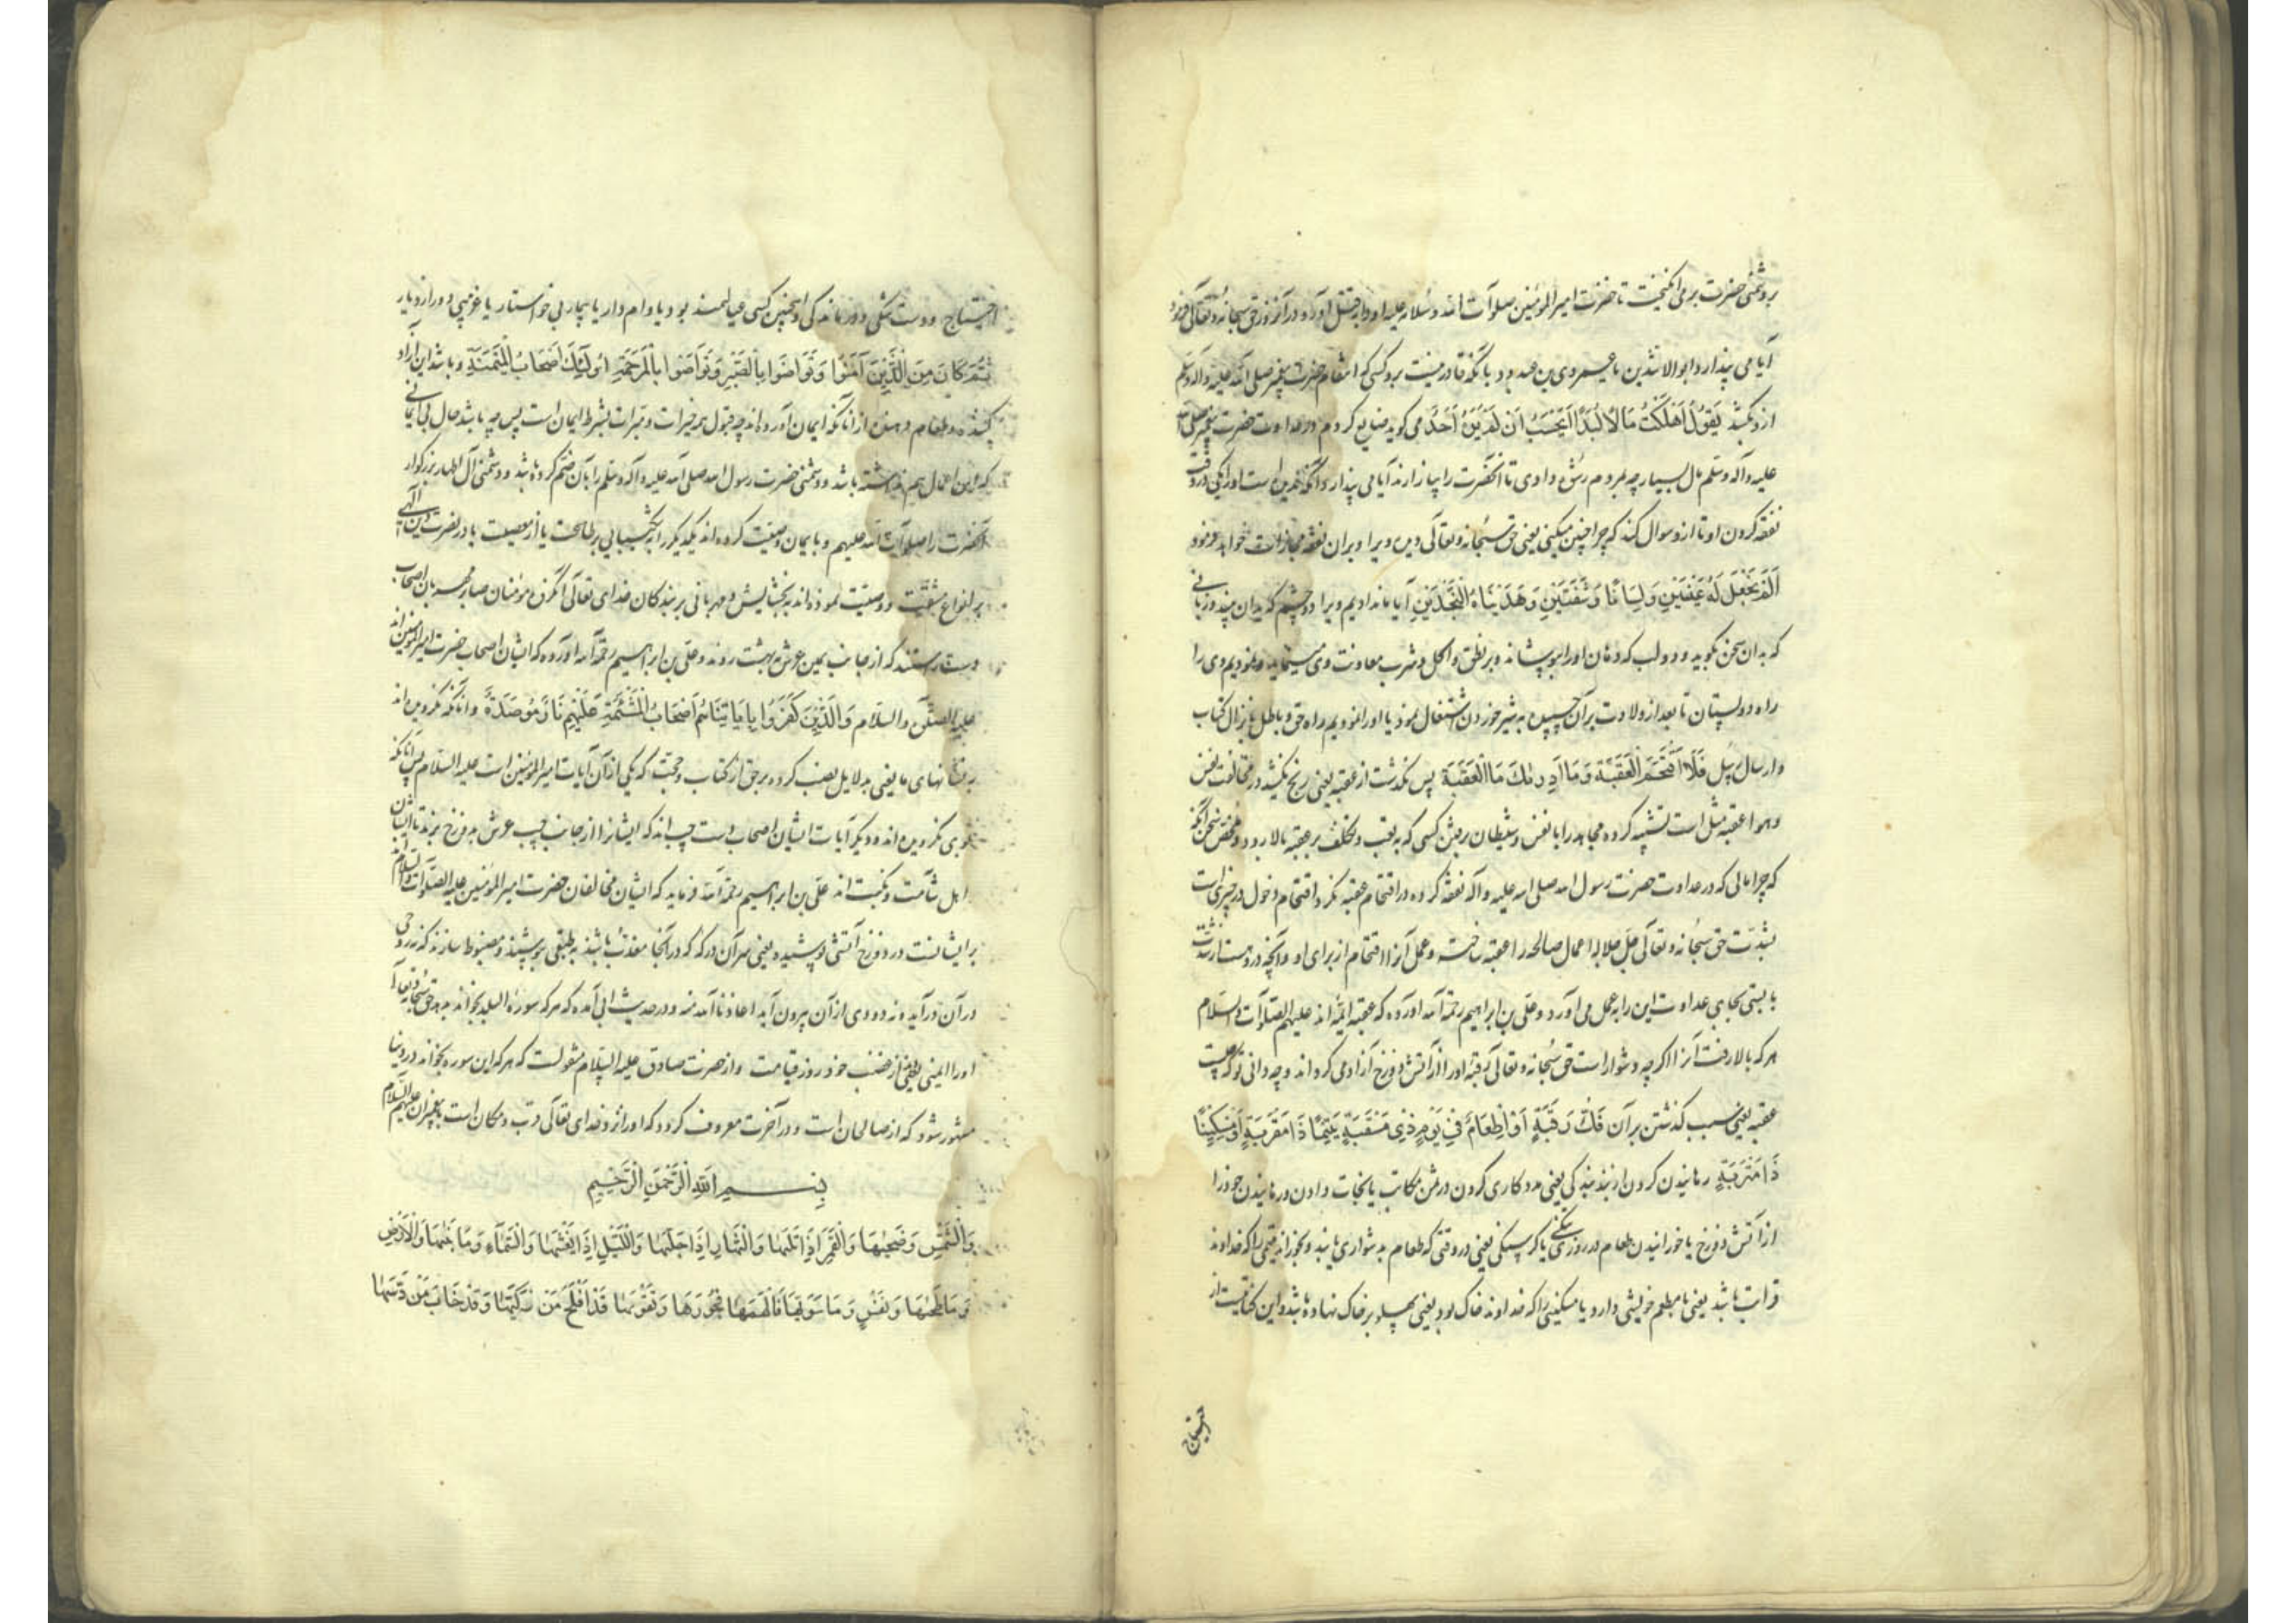 بردشمنی حضرت برمی انگیخت تا حضرت امیرالمؤمنین صلوات الله وسلامه علیه او را بقتل آورد و در آنروز حق سبحانه وتعالی فرمود
آیا می پندارد ابوالاشدین یا عمرو بن عبد ود بآنکه قادر نیست برو کسی که انتقام حضرت پیغمبر صلی الله علیه وآله وسلم
ازو بکشد یَقُولُ اَهْلَکْتُ مَالًا لُبَدًا اَیَحْسَبُ اَنْ لَمْ یَرَهُ اَحَدٌ می کوید ضایع کردم در عداوت حضرت پیغمبر صلی الله
علیه وآله وسلم مال بسیار چه بمردم رشوه دادی تا آنحضرت را بیازارند آیا می پندارد آنکه ندیده است او را یکی در وقت
نفقه کردن او تا ازو سوال کند که چرا چنین میکنی یعنی حق سبحانه وتعالی دیده ویرا و بران نفقه مجازات خواهد فرمود
اَلَمْ نَجْعَلْ لَهُ عَیْنَیْنِ وَلِسَانًا وَشَفَتَیْنِ وَهَدَیْنَاهُ النَّجْدَیْنِ آیا ما ندادیم ویرا دو چشم که بدان بیند و زبانی
که بدان سخن بگوید و دو لب که دهان او را بپوشاند و بر نطق و اکل و شرب معاونت وی مینماید و نمودیم وی را
راه دو پستان تا بعد از ولادت بر آن چسپیده به شیر خوردن اشتغال نمود یا او را نمودیم راه حق و باطل بانزال کتاب
وارسال رسل فَلَا اقْتَحَمَ الْعَقَبَةَ وَمَا اَدْرٰیكَ مَا الْعَقَبَةُ پس نکذشت از عقبه یعنی رنج نکشید در مخالفت نفس
وهوا عقبه مثل است تشبیه کرده مجاهد را با نفس و شیطان برفتن کسی که به تعب و تکلف بر عقبه بالا رود و ملخص سخن آنکه
که چرا مالی که در عداوت حضرت رسول الله صلی الله علیه وآله نفقه کرده در اقتحام عقبه نکرد و اقتحام دخول در چیزی است
بشدت حق سبحانه وتعالی جل جلاله اعمال صالحه را عقبه ساخته و عمل آنرا اقتحام از برای او وآنچه در وهست از شدت
بایستی بجای عداوت این را بعمل می آورد و علی بن ابراهیم رحمه الله آورده که عقبه ائمه اند علیهم الصلوات والسلام
هر که بالا رفت آنرا اگرچه دشوار است حق سبحانه وتعالی رقبه او را از آتش دوزخ آزاد می کرداند و چه دانی تو که چیست
عقبه یعنی سبب کذشتن بر آن فَكُّ رَقَبَةٍ اَوْ اِطْعَامٌ فِی یَوْمٍ ذِی مَسْغَبَةٍ یَتِیمًا ذَا مَقْرَبَةٍ اَوْ مِسْکِینًا
ذَا مَتْرَبَةٍ رهانیدن کردن از بند بندکی یعنی مددکاری کردن در ثمن مکاتب یا نجات دادن و رهانیدن خود را
از آتش دوزخ یا خورانیدن طعام در روزی با کرسنکی یعنی در وقتی که طعام بدشواری یابند و بخورانند یتیمی را که خداوند
قرابت باشد یعنی با مطعم خویشی دارد یا مسکینی را که خداوند خاک بود یعنی پهلو بر خاک نهاده باشد و این کنایتست از
احتیاج
احتیاج و دست تنکی و درماندکی او چنین کسی عیالمند بود یا وام دار یا بیمار بی خواستار یا غریبی دور از دیار
ثُمَّ کَانَ مِنَ الَّذِینَ آمَنُوا وَتَوَاصَوْا بِالصَّبْرِ وَتَوَاصَوْا بِالْمَرْحَمَةِ اُولٰئِكَ اَصْحَابُ الْمَیْمَنَةِ وباشد این آزاد
کننده و طعام دهنده از آنانکه ایمان آورده اند چه قبول همه خیرات و مبرات بشرط ایمان است پس چه باشد حال بی ایمانی
که این اعمال هم نداشته باشد و دشمنی حضرت رسول الله صلی الله علیه وآله وسلم را بآن ضم کرده باشد و دشمنی آل اطهار بزرکوار
آنحضرت را صلوات الله علیهم وبا ایمان وصیت کرده اند یکدیکر را بشکیبایی بر طاعت یا از معصیت یا در نصرت دین الهی
بر انواع مشقت و وصیت نموده اند به بخشایش و مهربانی بر بندکان خدای تعالی آنکروه مؤمنان صابر مهربان اصحاب
دست راستند که از جانب یمین عرش به بهشت روند و علی بن ابراهیم رحمه الله آورده که ایشان اصحاب حضرت امیرالمؤمنین اند
علیه الصلوة والسلام وَالَّذِینَ کَفَرُوا بِاٰیَاتِنَا هُمْ اَصْحَابُ الْمَشْئَمَةِ عَلَیْهِمْ نَارٌ مُؤْصَدَةٌ وآنانکه نکرویده اند
به نشانهای ما یعنی به دلایل نصب کرده بر حق از کتاب و حجت که یکی از آن آیات امیرالمؤمنین است علیه السلام پس آنانکه
بوی نکرویده اند و دیکر آیات ایشان اصحاب دست چپ اند که ایشانرا از جانب چپ عرش به دوزخ برند تا ایشان
اهل شآمت و نکبت اند علی بن ابراهیم رحمه الله فرماید که ایشان مخالفان حضرت امیرالمؤمنین علیه الصلوات والسلام اند
بر ایشانست در دوزخ آتشی پوشیده یعنی سر آن درکه که در آنجا معذب باشند به طبقی بپوشند و مضبوط سازند که نه روحی
در آن درآید و نه دودی از آن بیرون آید اعاذنا الله منه و در حدیث ابی آمده که هر که سوره البلد بخواند بدهد حق سبحانه وتعالی
او را ایمنی یعنی از غضب خود روز قیامت و از حضرت صادق علیه السلام منقولست که هر که این سوره بخواند در دنیا
مشهور شود که از صالحان است و در آخرت معروف کردد که او را نزد خدای تعالی قرب و مکان است با پیغمبران علیهم السلام
بِسْمِ اللهِ الرَّحْمٰنِ الرَّحِیمِ
وَالشَّمْسِ وَضُحٰیهَا وَالْقَمَرِ اِذَا تَلٰیهَا وَالنَّهَارِ اِذَا جَلّٰیهَا وَاللَّیْلِ اِذَا یَغْشٰیهَا وَالسَّمَاءِ وَمَا بَنٰیهَا وَالْاَرْضِ
وَمَا طَحٰیهَا وَنَفْسٍ وَمَا سَوّٰیهَا فَاَلْهَمَهَا فُجُورَهَا وَتَقْوٰیهَا قَدْ اَفْلَحَ مَنْ زَکّٰیهَا وَقَدْ خَابَ مَنْ دَسّٰیهَا